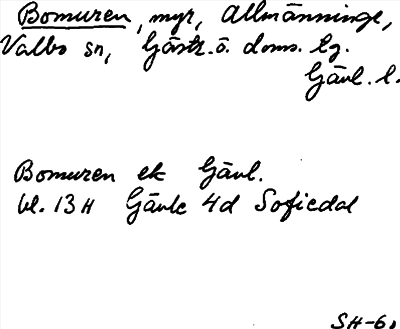 Bomuren, myr, Allmänninge,
Valbo sn, Gästr. ö. doms. tg.
Gävl. l.
Bomuren ek Gävl.
bl. 13H Gävle 4d Sofiedal
SH-61